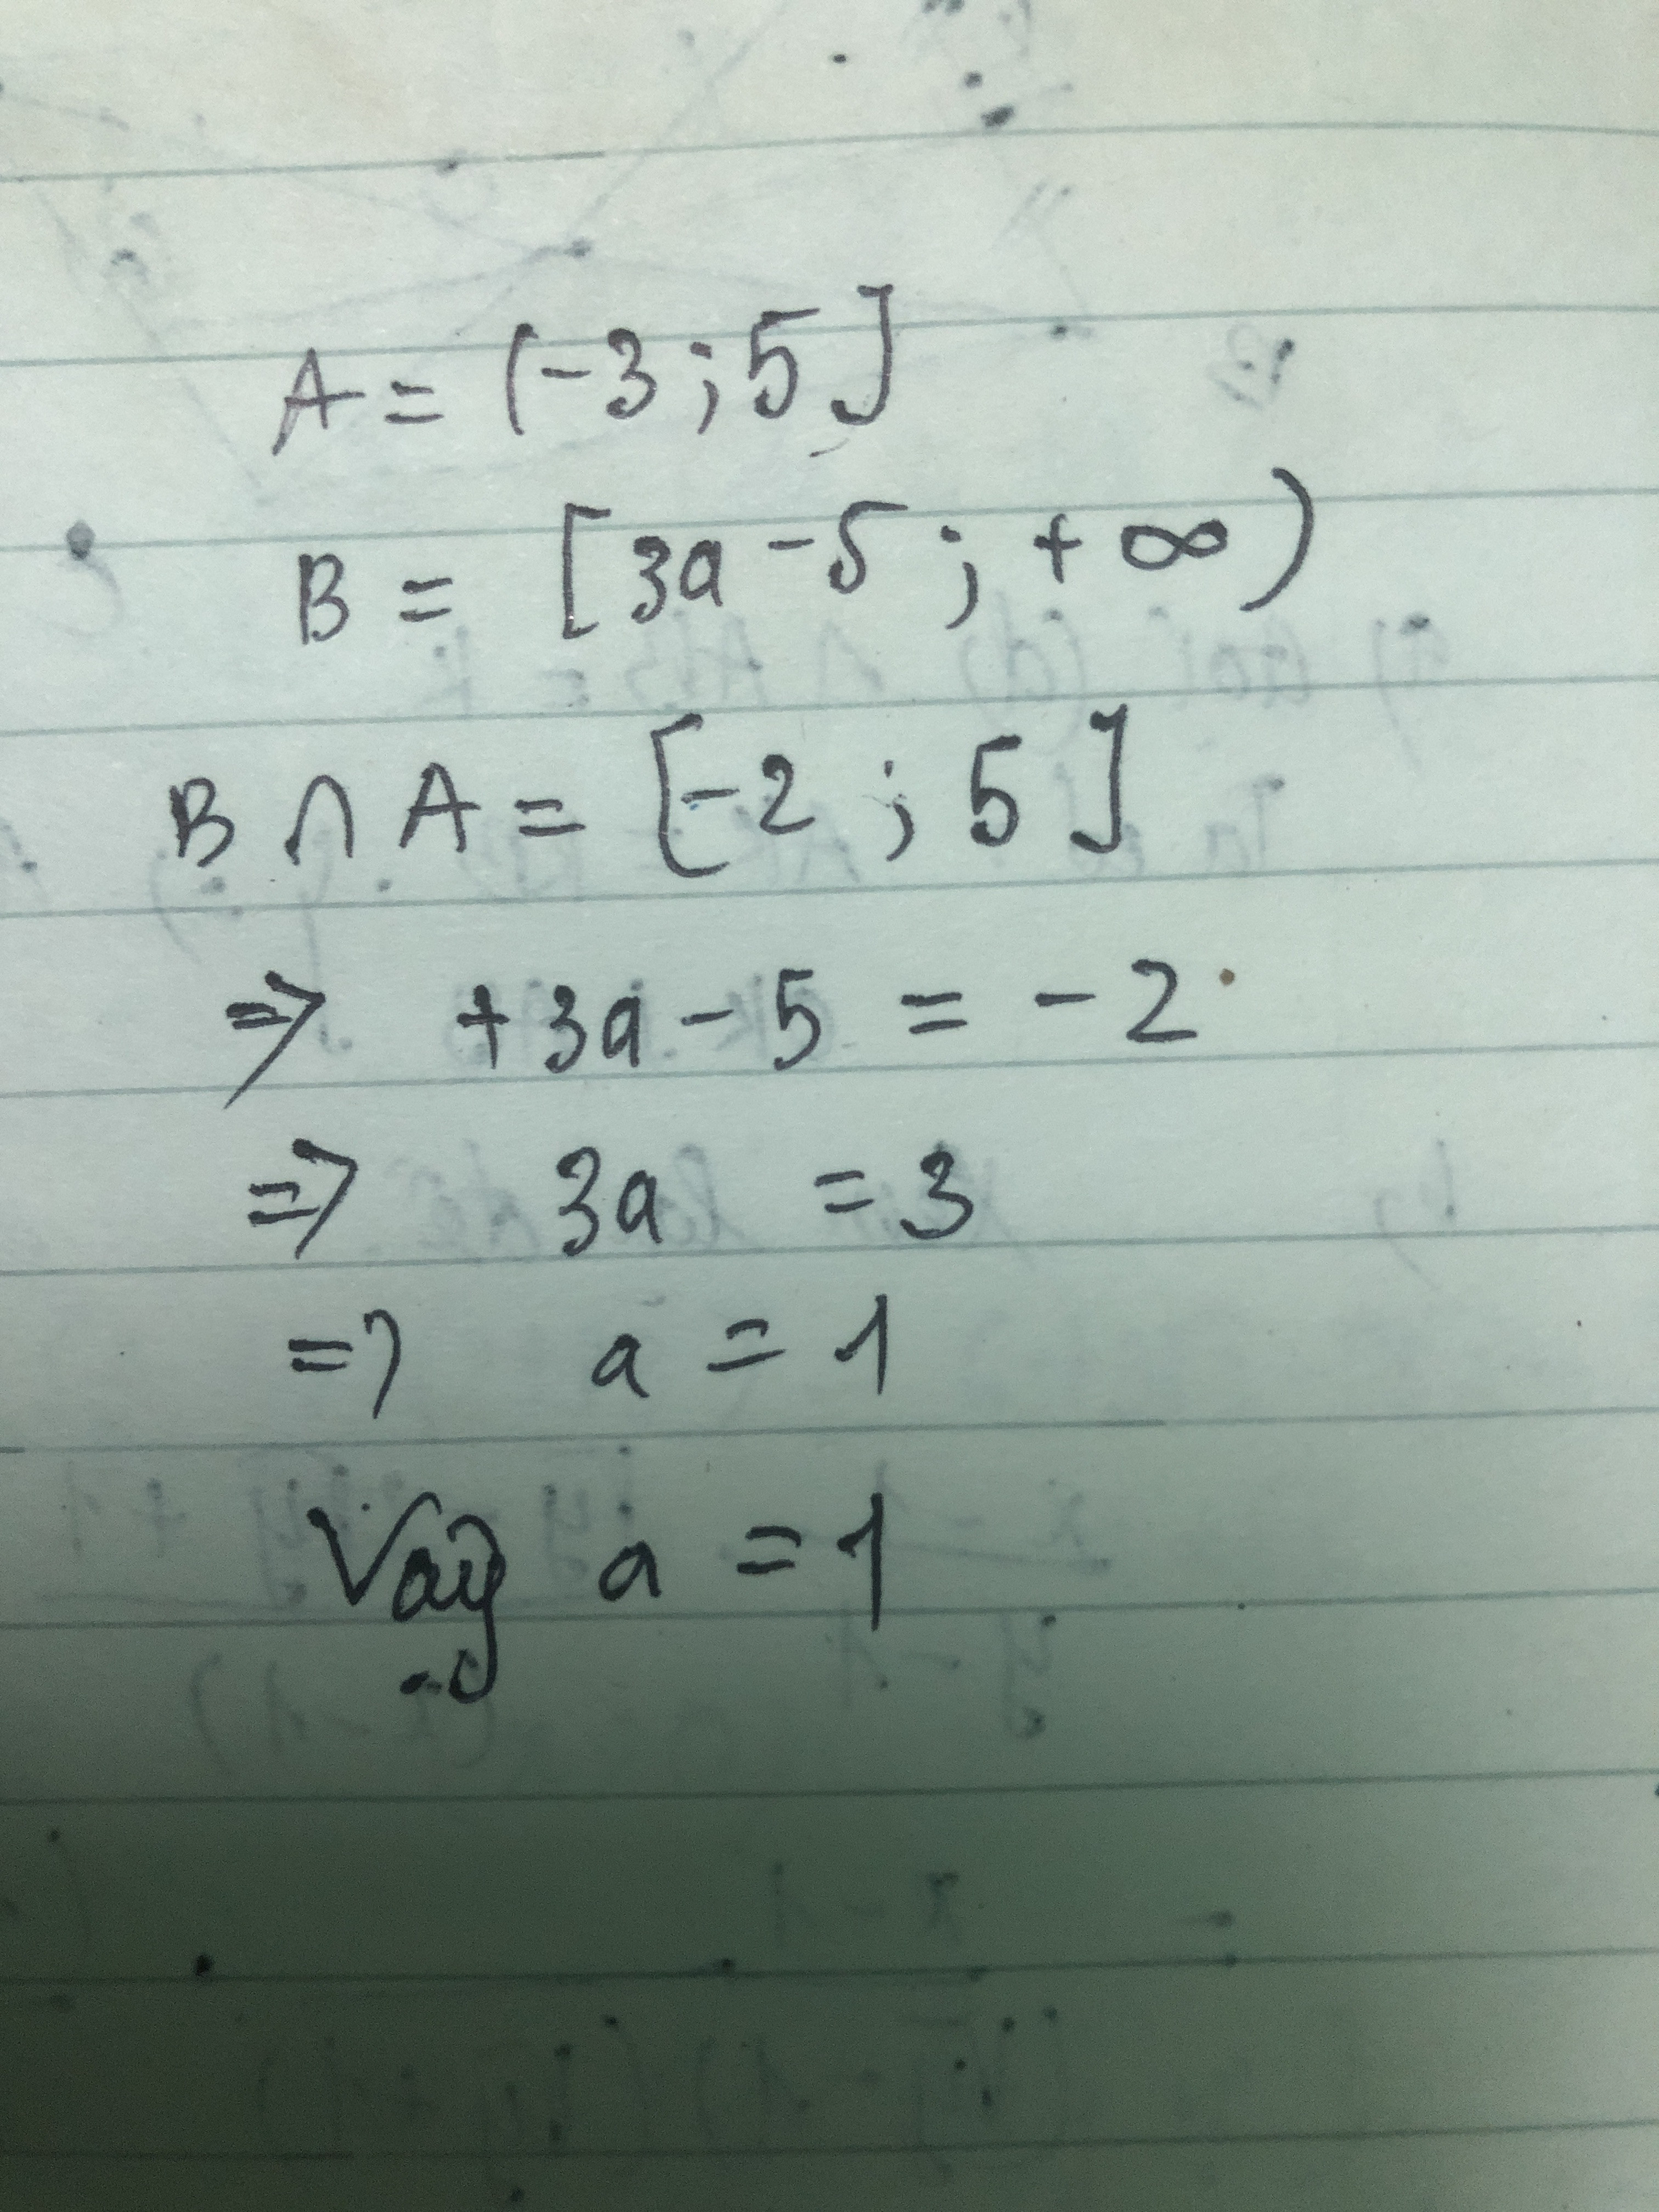 A = (-3 ; 5]
B = [3a - 5 ; + ∞)
B ∩ A = [-2 ; 5]
=> +3a - 5 = - 2
=> 3a = 3
=> a = 1
Vậy a = 1